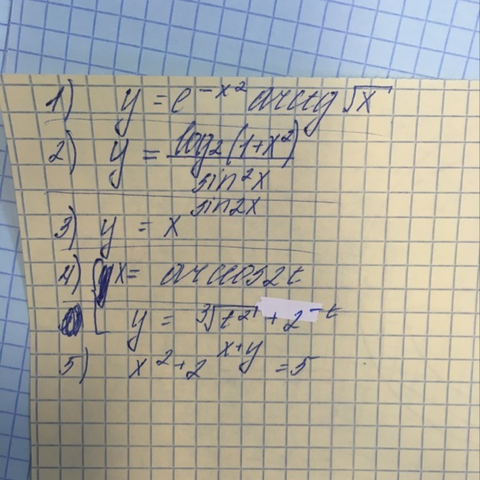 1) y = e^{-x^2} arctg √x
2) y = log₂(1+x²)
sin²x
3) y = x^{sin2x}
4) { x = arccos2t
y = ∛t² + 2^{-t}
5) x² + 2^{x+y} = 5